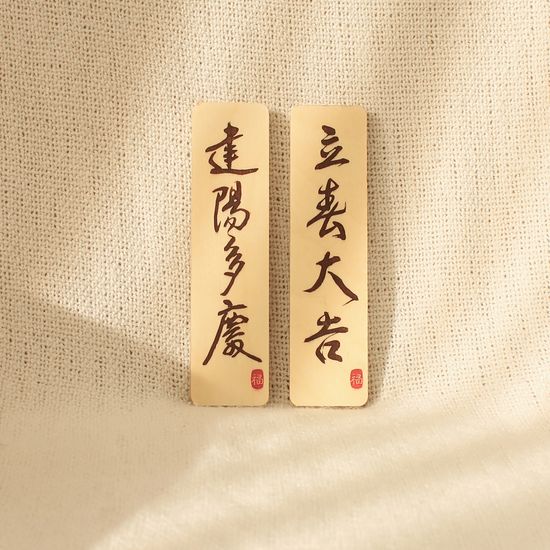 立春大吉
建陽多慶
福
福